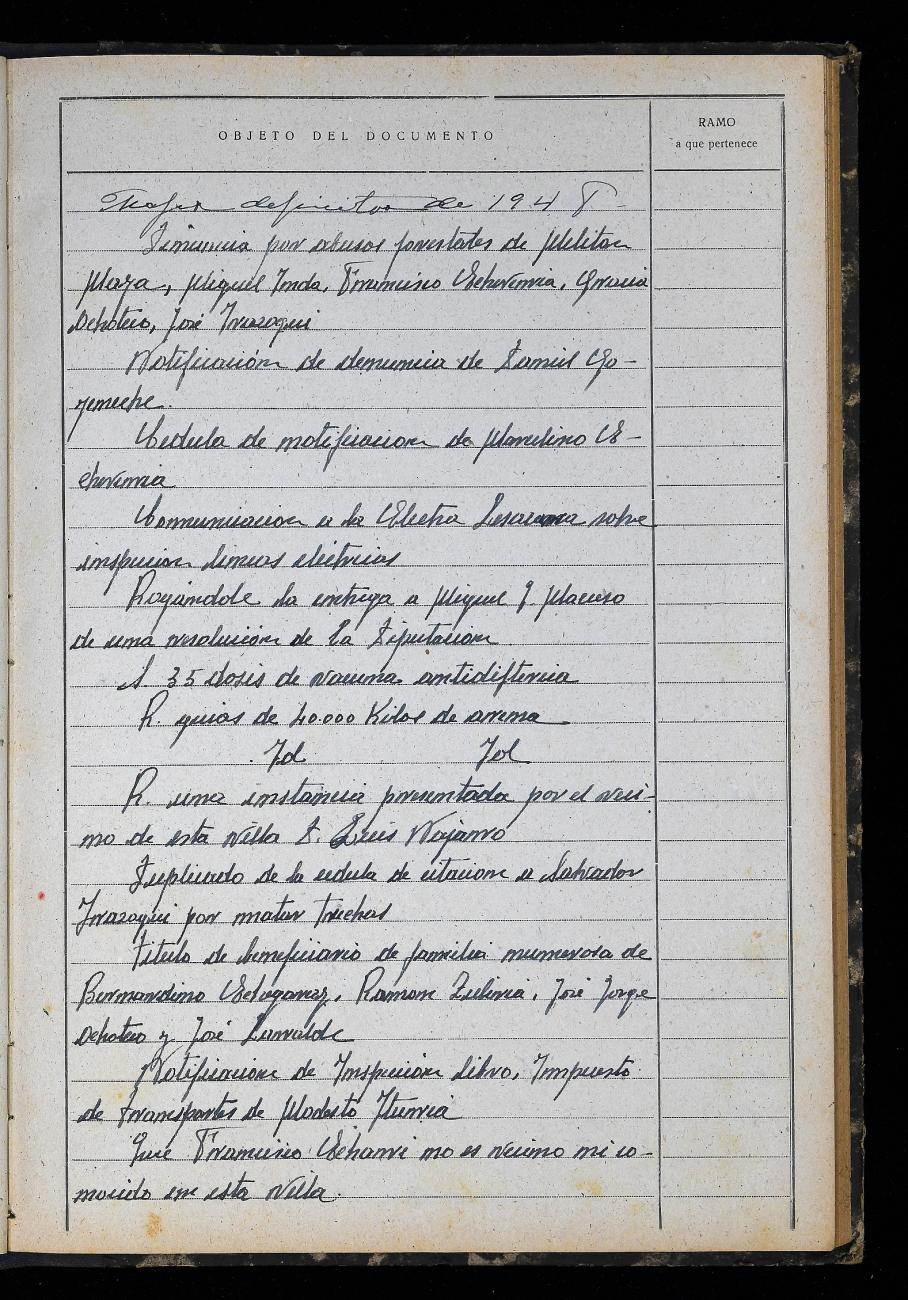 OBJETO DEL DOCUMENTO
RAMO
a que pertenece
definitivo de 194
Denuncia por abusos forestales de Meliton
Plaza, Miguel Inda, Francisco Echeverria, Gracia
Ochoteco, José Irazoqui
Notificación de denuncia de Daniel Go-
yeneche.
Cedula de notificacion de Marcelino E-
cheverria
Comunicacion a la Electra Lesacana sobre
inspecion lineas electricas
Rogándole la entrega a Miguel
de una resolución de la Diputacion
A 35 dosis de vacuna antidifterica
R. guias de 40.000 Kilos de arena
Id Id
R. una instancia presentada por el veci-
no de esta villa D. Luis Navarro
Duplicado de la cedula de citacion a Salvador
Irazoqui por matar truchas
Titulo de beneficiario de familia numerosa de
Bernardino Echegaray, Ramon, José Jorge
Ochoteco y José
Notificacion de Inspección Libro, Impuesto
de transportes de Modesto Iturria
Que Francisco Echarri no es vecino ni co-
nocido en esta villa.